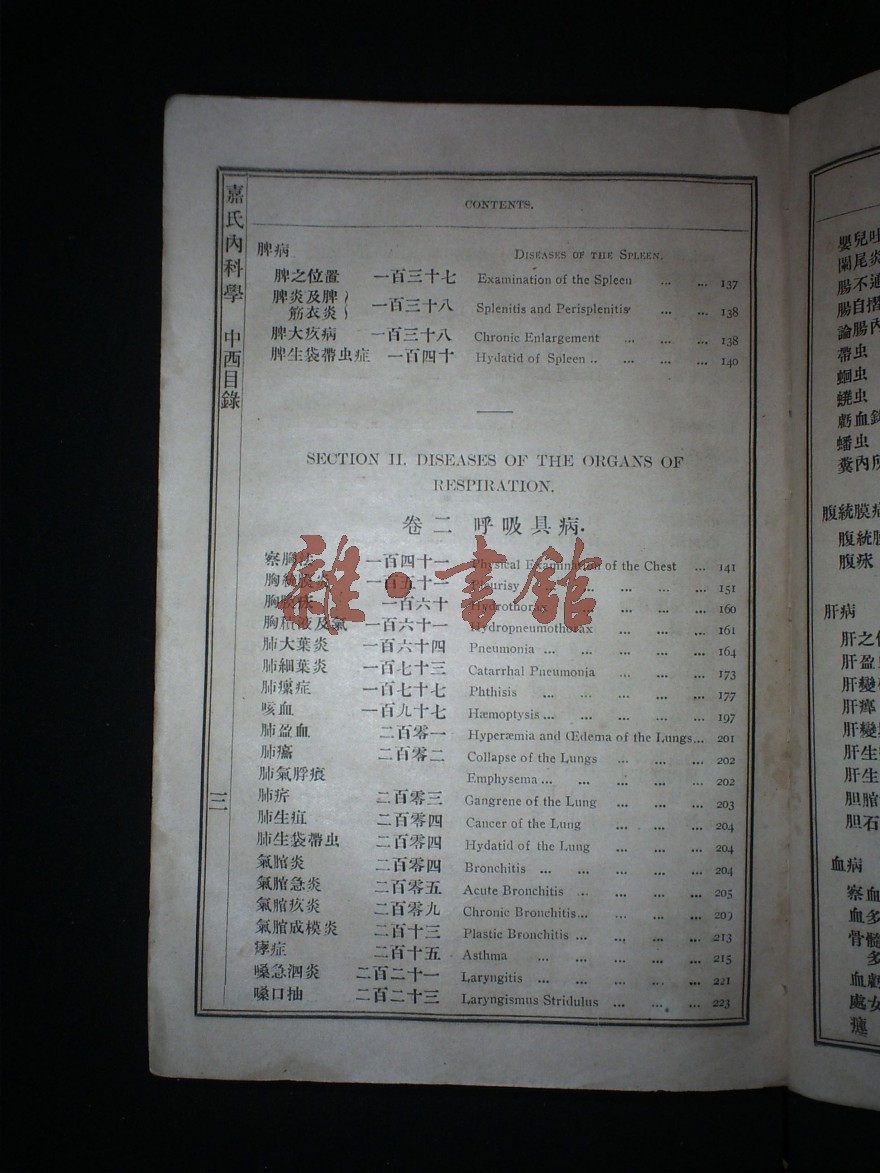 嘉氏內科學 中西目錄
三
CONTENTS.
脾病 DISEASES OF THE SPLEEN.
脾之位置 一百三十七 Examination of the Spleen ... ... 137
脾炎及脾筋衣炎 一百三十八 Splenitis and Perisplenitis ... ... 138
脾大疚病 一百三十八 Chronic Enlargement ... ... ... 138
脾生袋帶虫症 一百四十 Hydatid of Spleen .. ... ... ... 140
SECTION II. DISEASES OF THE ORGANS OF
RESPIRATION.
卷二 呼吸具病.
察胸法 一百四十一 Physical Examination of the Chest ... 141
胸統膜炎 一百五十一 Pleurisy ... ... ... ... 151
一百六十 Hydrothorax ... ... ... 160
胸積液及氣 一百六十一 Hydropneumothorax ... ... ... 161
肺大葉炎 一百六十四 Pneumonia ... ... ... ... ... 164
肺細葉炎 一百七十三 Catarrhal Pneumonia ... ... ... 173
肺癆症 一百七十七 Phthisis ... ... ... ... ... 177
咳血 一百九十七 Hæmoptysis ... ... ... ... ... 197
肺盈血 二百零一 Hyperæmia and Œdema of the Lungs... 201
二百零二 Collapse of the Lungs ... ... ... 202
Emphysema ... ... ... ... ... 202
二百零三 Gangrene of the Lung ... ... ... 203
肺生疽 二百零四 Cancer of the Lung ... ... ... 204
肺生袋帶虫 二百零四 Hydatid of the Lung ... ... ... 204
氣管炎 二百零四 Bronchitis ... ... ... ... ... 204
氣管急炎 二百零五 Acute Bronchitis ... ... ... ... 205
氣管疚炎 二百零九 Chronic Bronchitis... ... ... ... 209
氣管成模炎 二百十三 Plastic Bronchitis ... ... ... ... 213
二百十五 Asthma ... ... ... ... ... 215
嗓急泗炎 二百二十一 Laryngitis ... ... ... ... ... 221
嗓口抽 二百二十三 Laryngismus Stridulus ... ... ... 223
雜·書館
嬰兒吐
闌尾炎
腸不通
腸自摺
論腸內
帶虫
蛔虫
蟯虫
虧血
蟠虫
糞內
腹統膜病
腹統膜
肝病
肝之位
肝盈血
肝變
肝瘴
肝變
肝生
肝生
胆管
胆石
血病
察血
血多
骨髓
多
血虧
處女